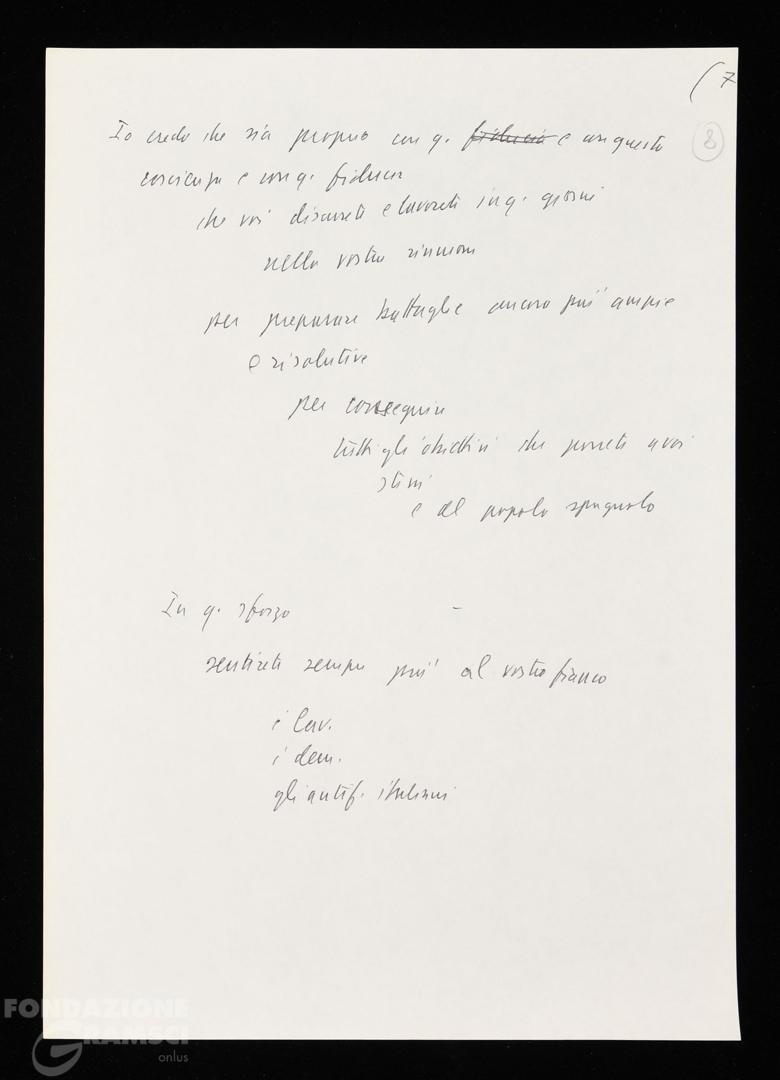 (7
8
Io credo che sia proprio con q. fiducia e con questa
coscienza e con q. fiducia
che voi discutete e lavorate in q. giorni
nella vostra riunione
per preparare battaglie ancora più ampie
e risolutive
per conseguire
tutti gli obiettivi che ponete a voi
stessi
e al popolo spagnolo
In q. sforzo
sentirete sempre più al vostro fianco
i lav.
i dem.
gli antif. italiani
FONDAZIONE
GRAMSCI
onlus